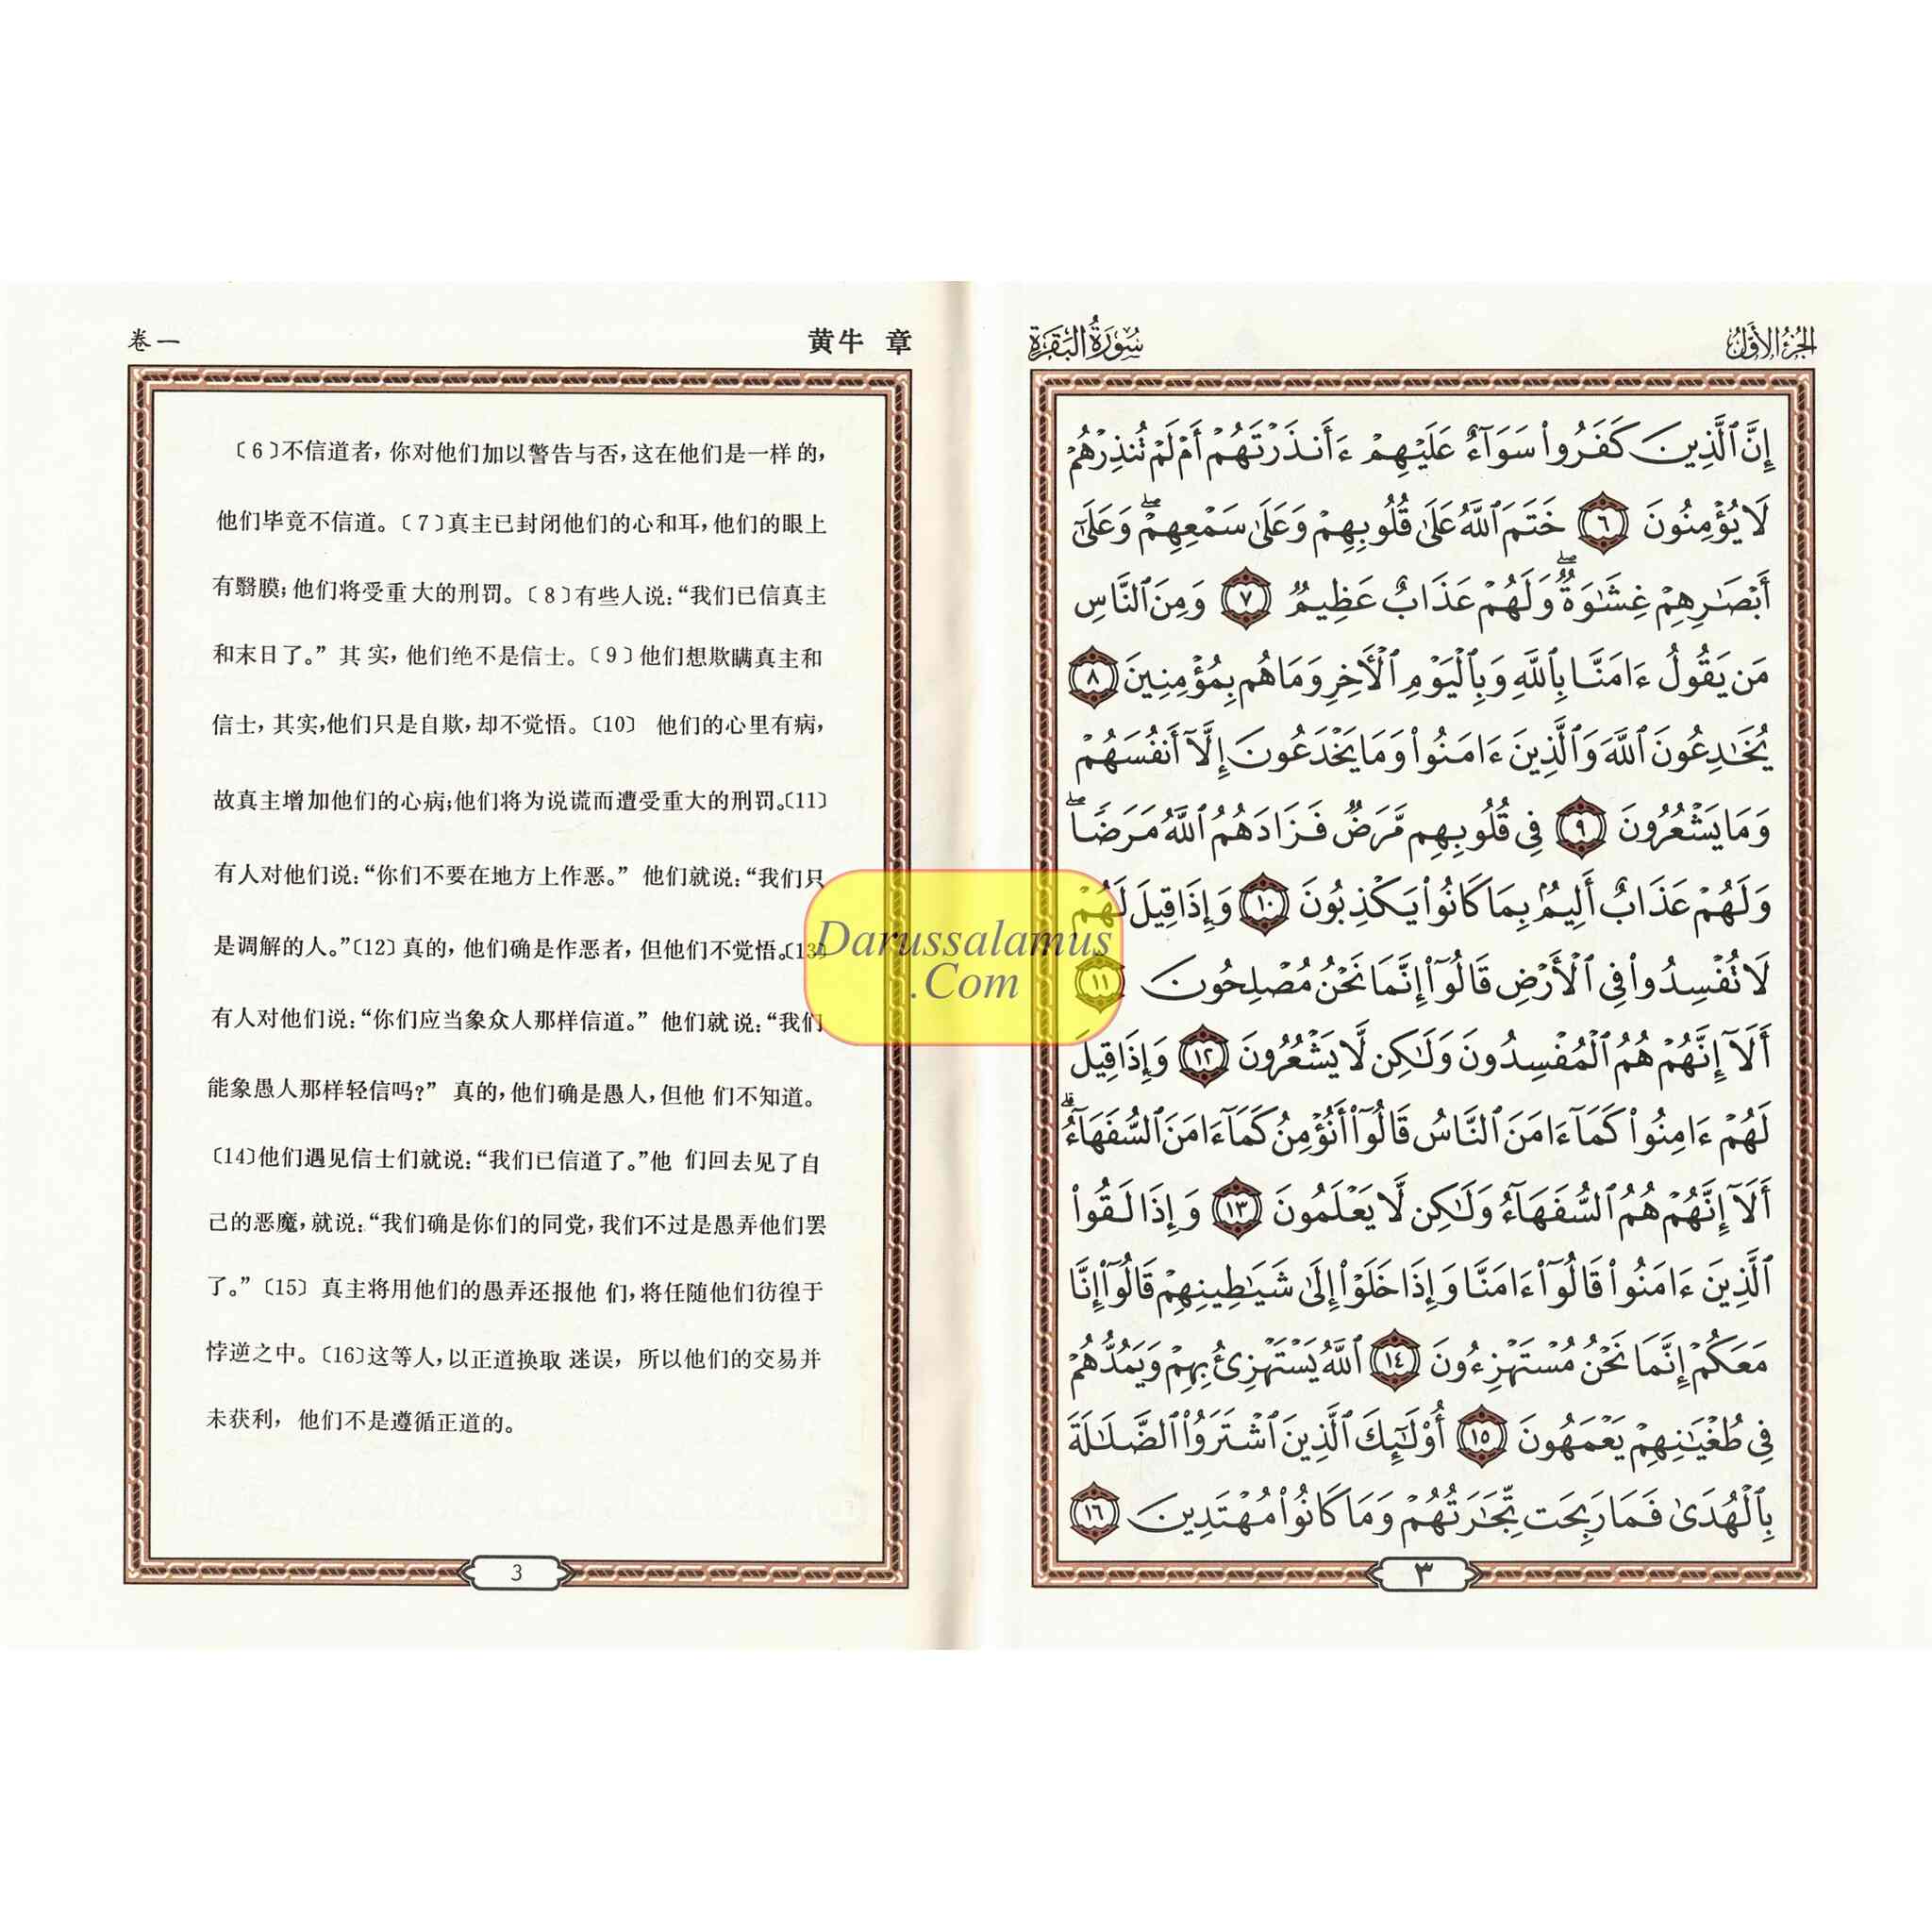 卷一
黄牛 章
〔6〕不信道者，你对他们加以警告与否，这在他们是一样的，
他们毕竟不信道。〔7〕真主已封闭他们的心和耳，他们的眼上
有翳膜；他们将受重大的刑罚。〔8〕有些人说：“我们已信真主
和末日了。” 其实，他们绝不是信士。〔9〕他们想欺瞒真主和
信士，其实，他们只是自欺，却不觉悟。〔10〕 他们的心里有病，
故真主增加他们的心病；他们将为说谎而遭受重大的刑罚。〔11〕
有人对他们说：“你们不要在地方上作恶。” 他们就说：“我们只
是调解的人。”〔12〕真的，他们确是作恶者，但他们不觉悟。〔13〕
有人对他们说：“你们应当象众人那样信道。” 他们就说：“我们
能象愚人那样轻信吗？” 真的，他们确是愚人，但他们不知道。
〔14〕他们遇见信士们就说：“我们已信道了。”他们回去见了自
己的恶魔，就说：“我们确是你们的同党，我们不过是愚弄他们罢
了。”〔15〕 真主将用他们的愚弄还报他们，将任随他们彷徨于
悖逆之中。〔16〕这等人，以正道换取迷误，所以他们的交易并
未获利，他们不是遵循正道的。
3
الجزء الأول
سورة البقرة
إِنَّ ٱلَّذِينَ كَفَرُوا۟ سَوَآءٌ عَلَيْهِمْ ءَأَنذَرْتَهُمْ أَمْ لَمْ تُنذِرْهُمْ
لَا يُؤْمِنُونَ ٦ خَتَمَ ٱللَّهُ عَلَىٰ قُلُوبِهِمْ وَعَلَىٰ سَمْعِهِمْ ۖ وَعَلَىٰٓ
أَبْصَـٰرِهِمْ غِشَـٰوَةٌ ۖ وَلَهُمْ عَذَابٌ عَظِيمٌ ٧ وَمِنَ ٱلنَّاسِ
مَن يَقُولُ ءَامَنَّا بِٱللَّهِ وَبِٱلْيَوْمِ ٱلْـَٔاخِرِ وَمَا هُم بِمُؤْمِنِينَ ٨
يُخَـٰدِعُونَ ٱللَّهَ وَٱلَّذِينَ ءَامَنُوا۟ وَمَا يَخْدَعُونَ إِلَّآ أَنفُسَهُمْ
وَمَا يَشْعُرُونَ ٩ فِى قُلُوبِهِم مَّرَضٌ فَزَادَهُمُ ٱللَّهُ مَرَضًا ۖ
وَلَهُمْ عَذَابٌ أَلِيمٌۢ بِمَا كَانُوا۟ يَكْذِبُونَ ١٠ وَإِذَا قِيلَ لَهُمْ
لَا تُفْسِدُوا۟ فِى ٱلْأَرْضِ قَالُوٓا۟ إِنَّمَا نَحْنُ مُصْلِحُونَ ١١
أَلَآ إِنَّهُمْ هُمُ ٱلْمُفْسِدُونَ وَلَـٰكِن لَّا يَشْعُرُونَ ١٢ وَإِذَا قِيلَ
لَهُمْ ءَامِنُوا۟ كَمَآ ءَامَنَ ٱلنَّاسُ قَالُوٓا۟ أَنُؤْمِنُ كَمَآ ءَامَنَ ٱلسُّفَهَآءُ ۗ
أَلَآ إِنَّهُمْ هُمُ ٱلسُّفَهَآءُ وَلَـٰكِن لَّا يَعْلَمُونَ ١٣ وَإِذَا لَقُوا۟
ٱلَّذِينَ ءَامَنُوا۟ قَالُوٓا۟ ءَامَنَّا وَإِذَا خَلَوْا۟ إِلَىٰ شَيَـٰطِينِهِمْ قَالُوٓا۟ إِنَّا
مَعَكُمْ إِنَّمَا نَحْنُ مُسْتَهْزِءُونَ ١٤ ٱللَّهُ يَسْتَهْزِئُ بِهِمْ وَيَمُدُّهُمْ
فِى طُغْيَـٰنِهِمْ يَعْمَهُونَ ١٥ أُو۟لَـٰٓئِكَ ٱلَّذِينَ ٱشْتَرَوُا۟ ٱلضَّلَـٰلَةَ
بِٱلْهُدَىٰ فَمَا رَبِحَت تِّجَـٰرَتُهُمْ وَمَا كَانُوا۟ مُهْتَدِينَ ١٦
٣
Darussalamus
.Com